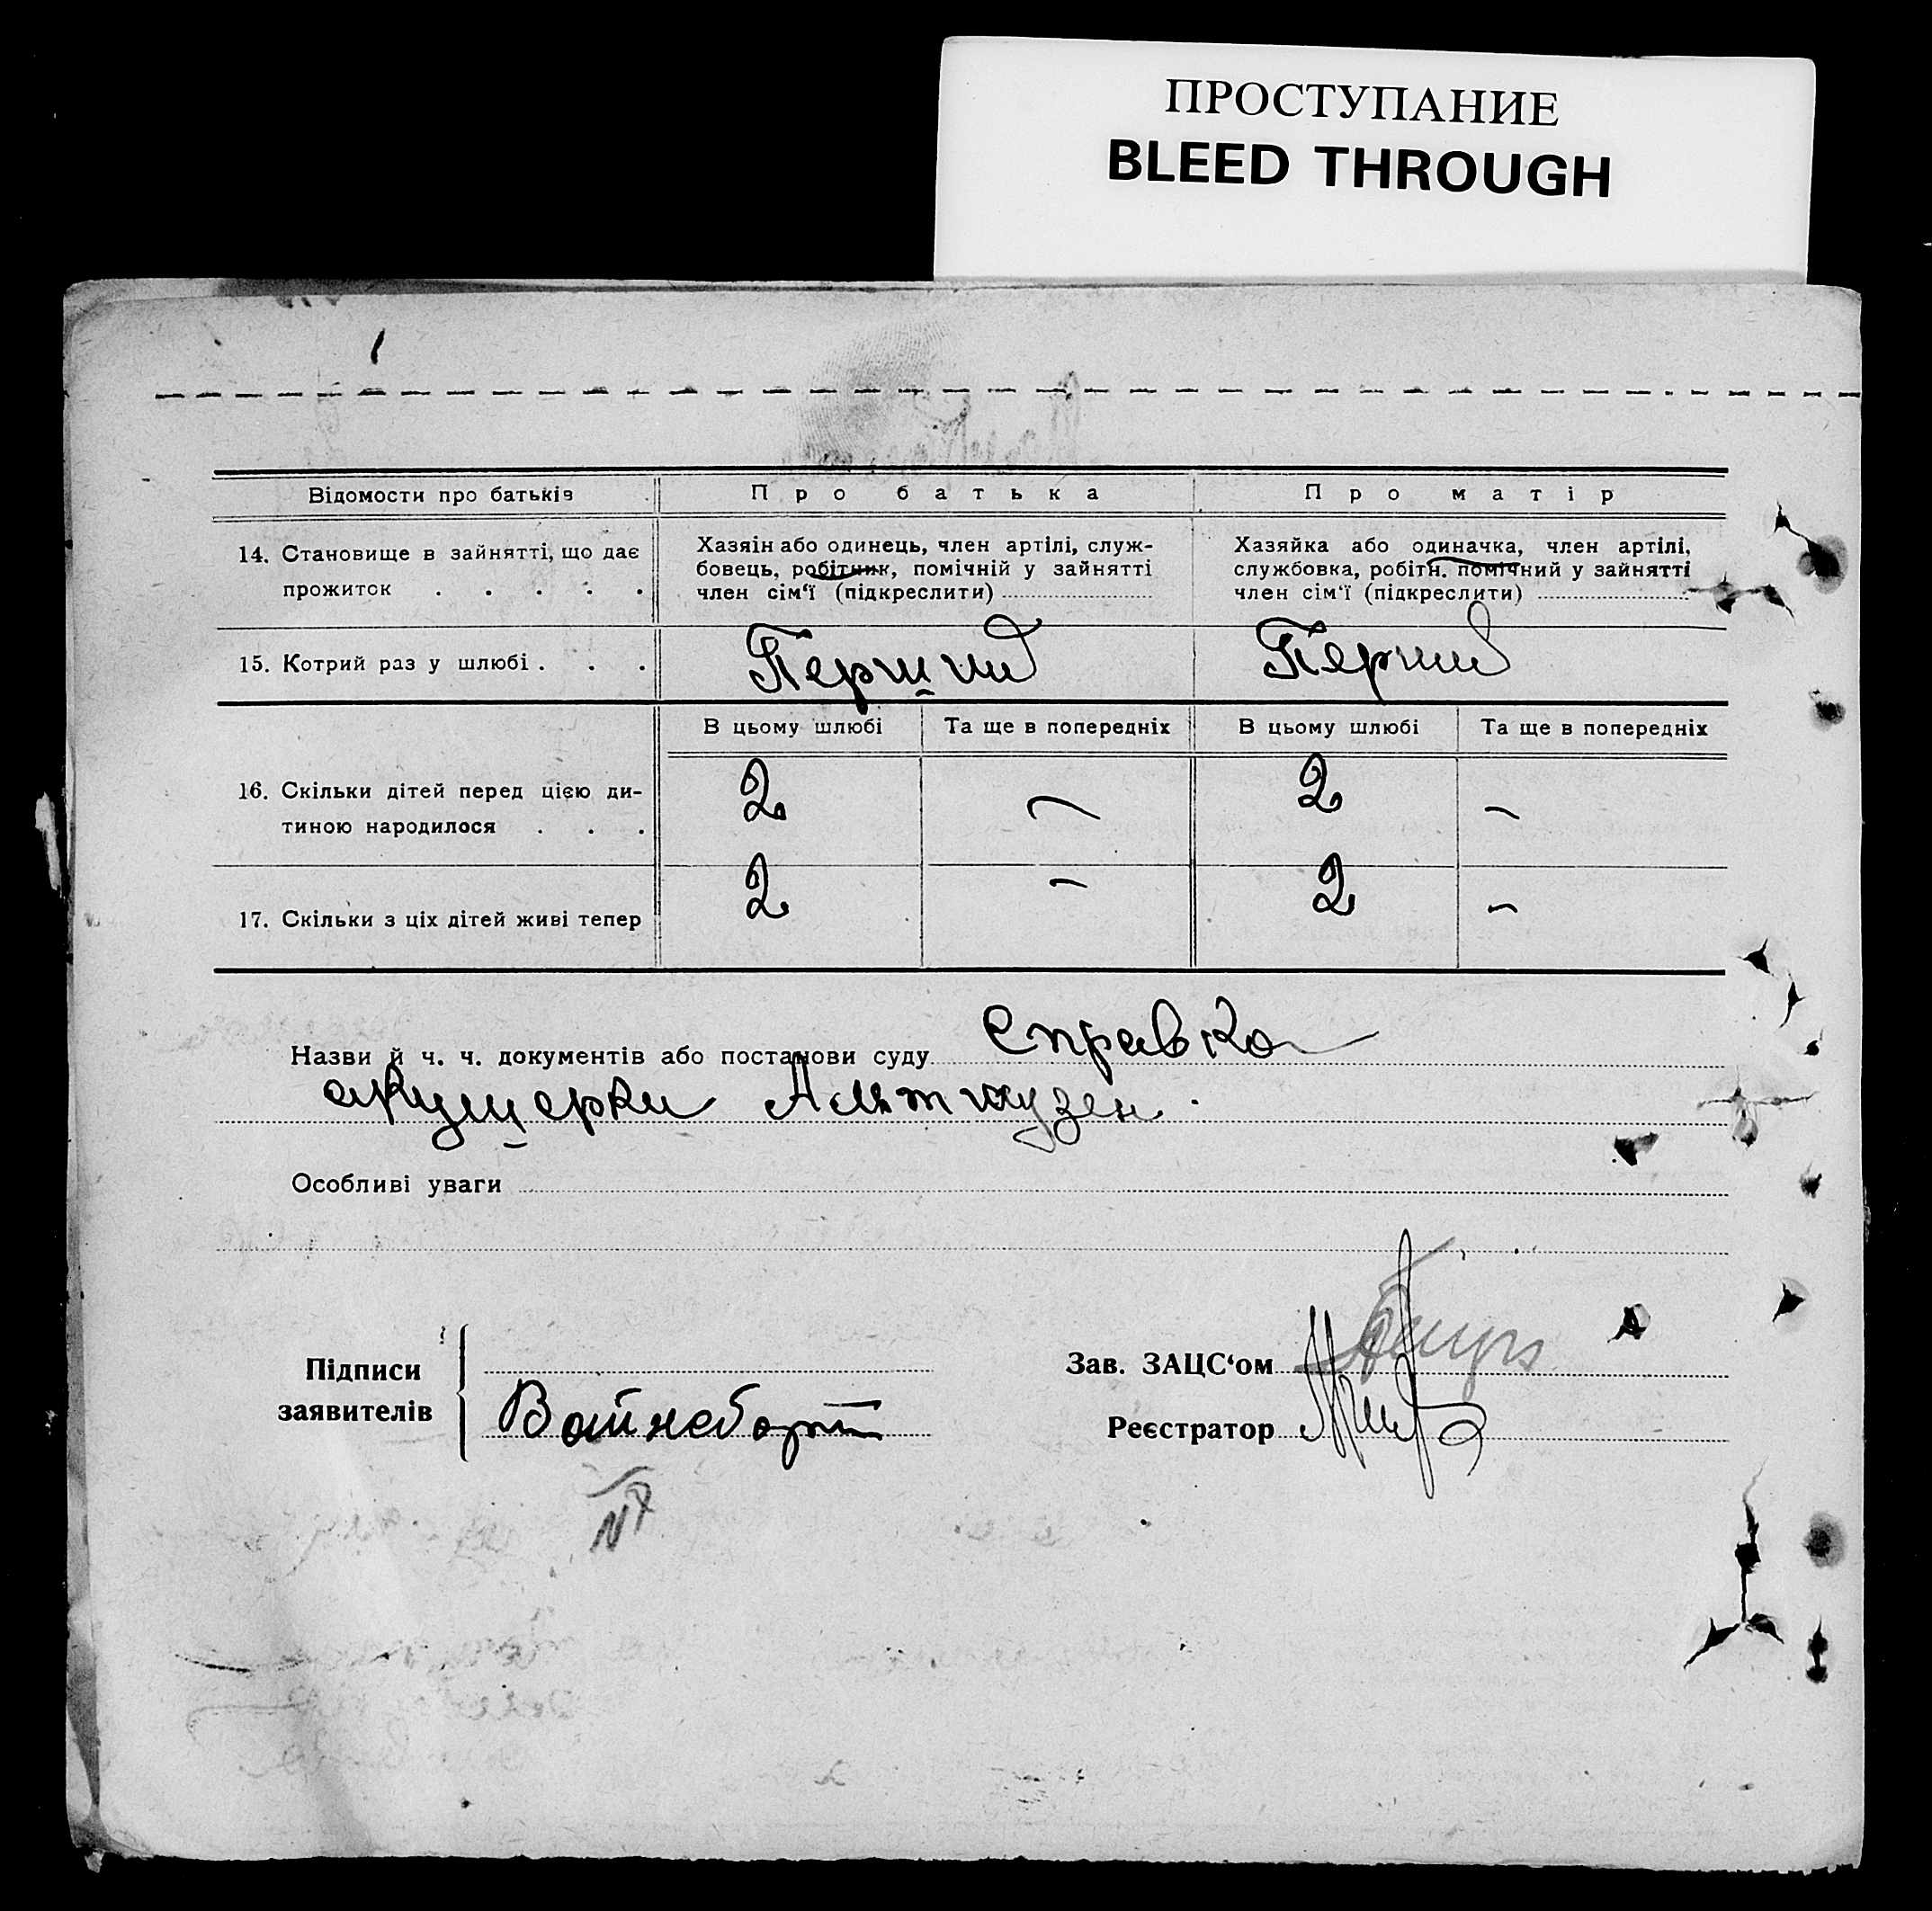 ПРОСТУПАНИЕ
BLEED THROUGH
Відомости про батьків
Про батька
Про матір
14. Становище в зайнятті, що дає
прожиток . . . . .
Хазяін або одинець, член артілі, служ-
бовець, робітник, помічній у зайнятті
член сім‘ї (підкреслити)
Хазяйка або одиначка, член артілі,
службовка, робітн. помічний у зайнятті
член сім‘ї (підкреслити)
15. Котрий раз у шлюбі . . .
Перший
Перший
В цьому шлюбі
Та ще в попередніх
В цьому шлюбі
Та ще в попередніх
16. Скільки дітей перед цією ди-
тиною народилося . . .
2 – 2 –
17. Скільки з ціх дітей живі тепер
2 – 2 –
Назви й ч. ч. документів або постанови суду Справка
акушерки Альтгаузен.
Особливі уваги
Підписи
заявителів
Вайнеборт
Зав. ЗАЦС‘ом
Реєстратор